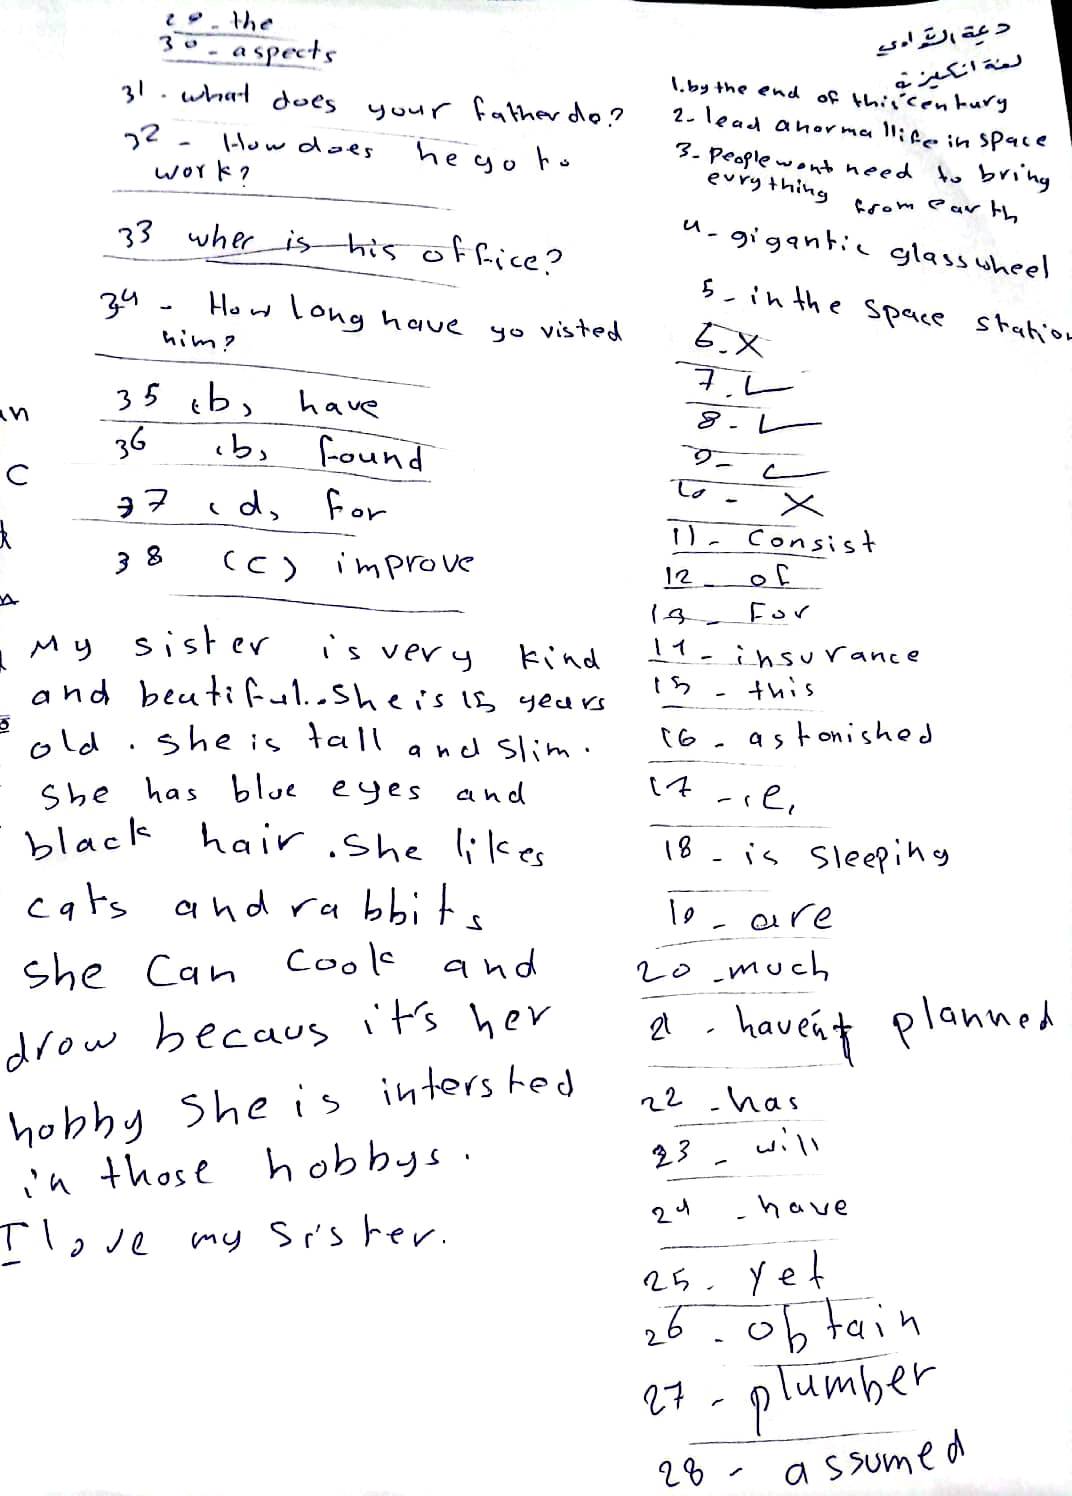 لغة انكليزية
1. by the end of this century
2- lead a normal life in space
3- people wont need to bring
evrything
from earth
4- gigantic glass wheel
5- in the space station
6. X
7. ✓
8- ✓
9- ✓
10 - X
11- Consist
12 - of
13 - For
14 - insurance
15 - this
16 - astonished
17 - (e)
18 - is sleeping
19 - are
20 - much
21 - haven't planned
22 - has
23 - will
24 - have
25. yet
26 - obtain
27 - plumber
28 - assumed
29 - the
30 - aspects
31. what does your father do?
32 - How does he go to
work?
33 wher is his office?
34 - How long have yo visted
him?
35 (b) have
36 (b) found
37 (d) for
38 (c) improve
My sister is very kind
and beutiful. She is 15 years
old. She is tall and slim.
She has blue eyes and
black hair. She likes
cats and rabbits
She Can Cook and
drow becaus it's her
hobby She is intersted
in those hobbys.
I love my Sister.